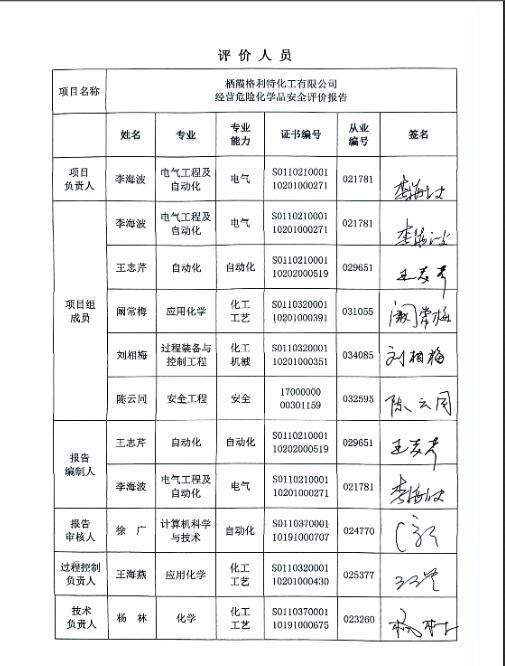 评价人员
项目名称
栖霞格利特化工有限公司
经营危险化学品安全评价报告
姓名 专业 专业能力 证书编号 从业编号 签名
项目负责人 李海波 电气工程及自动化 电气 S011021000110201000271 021781 李海波
项目组成员
李海波 电气工程及自动化 电气 S011021000110201000271 021781 李海波
王志芹 自动化 自动化 S011021000110202000519 029651 王志芹
阚常梅 应用化学 化工工艺 S011032000110201000391 031055 阚常梅
刘相梅 过程装备与控制工程 化工机械 S011032000110201000351 034085 刘相梅
陈云同 安全工程 安全 1700000000301159 032595 陈云同
报告编制人
王志芹 自动化 自动化 S011021000110202000519 029651 王志芹
李海波 电气工程及自动化 电气 S011021000110201000271 021781 李海波
报告审核人 徐广 计算机科学与技术 自动化 S011037000110191000707 024770
过程控制负责人 王海燕 应用化学 化工工艺 S011032000110201000430 025377
技术负责人 杨林 化学 化工工艺 S011037000110191000675 023260 杨林